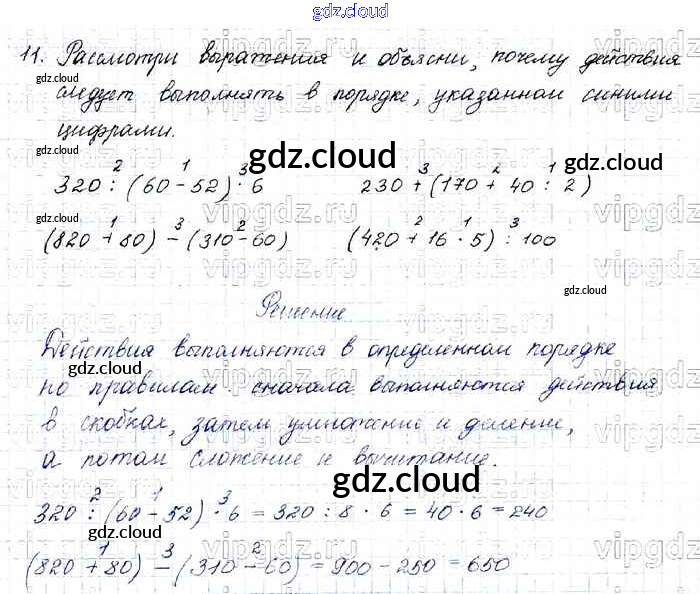 gdz.cloud
11. Рассмотри выражения и объясни, почему действия
следует выполнять в порядке, указанном синими
цифрами.
320 : (60 - 52) · 6    230 + (170 + 40 : 2)
(820 + 80) - (310 - 60)    (420 + 16 · 5) : 100
Решение.
Действия выполняются в определенном порядке
по правилам: сначала выполняются действия
в скобках, затем умножение и деление,
а потом сложение и вычитание.
320 : (60 - 52) · 6 = 320 : 8 · 6 = 40 · 6 = 240
(820 + 80) - (310 - 60) = 900 - 250 = 650